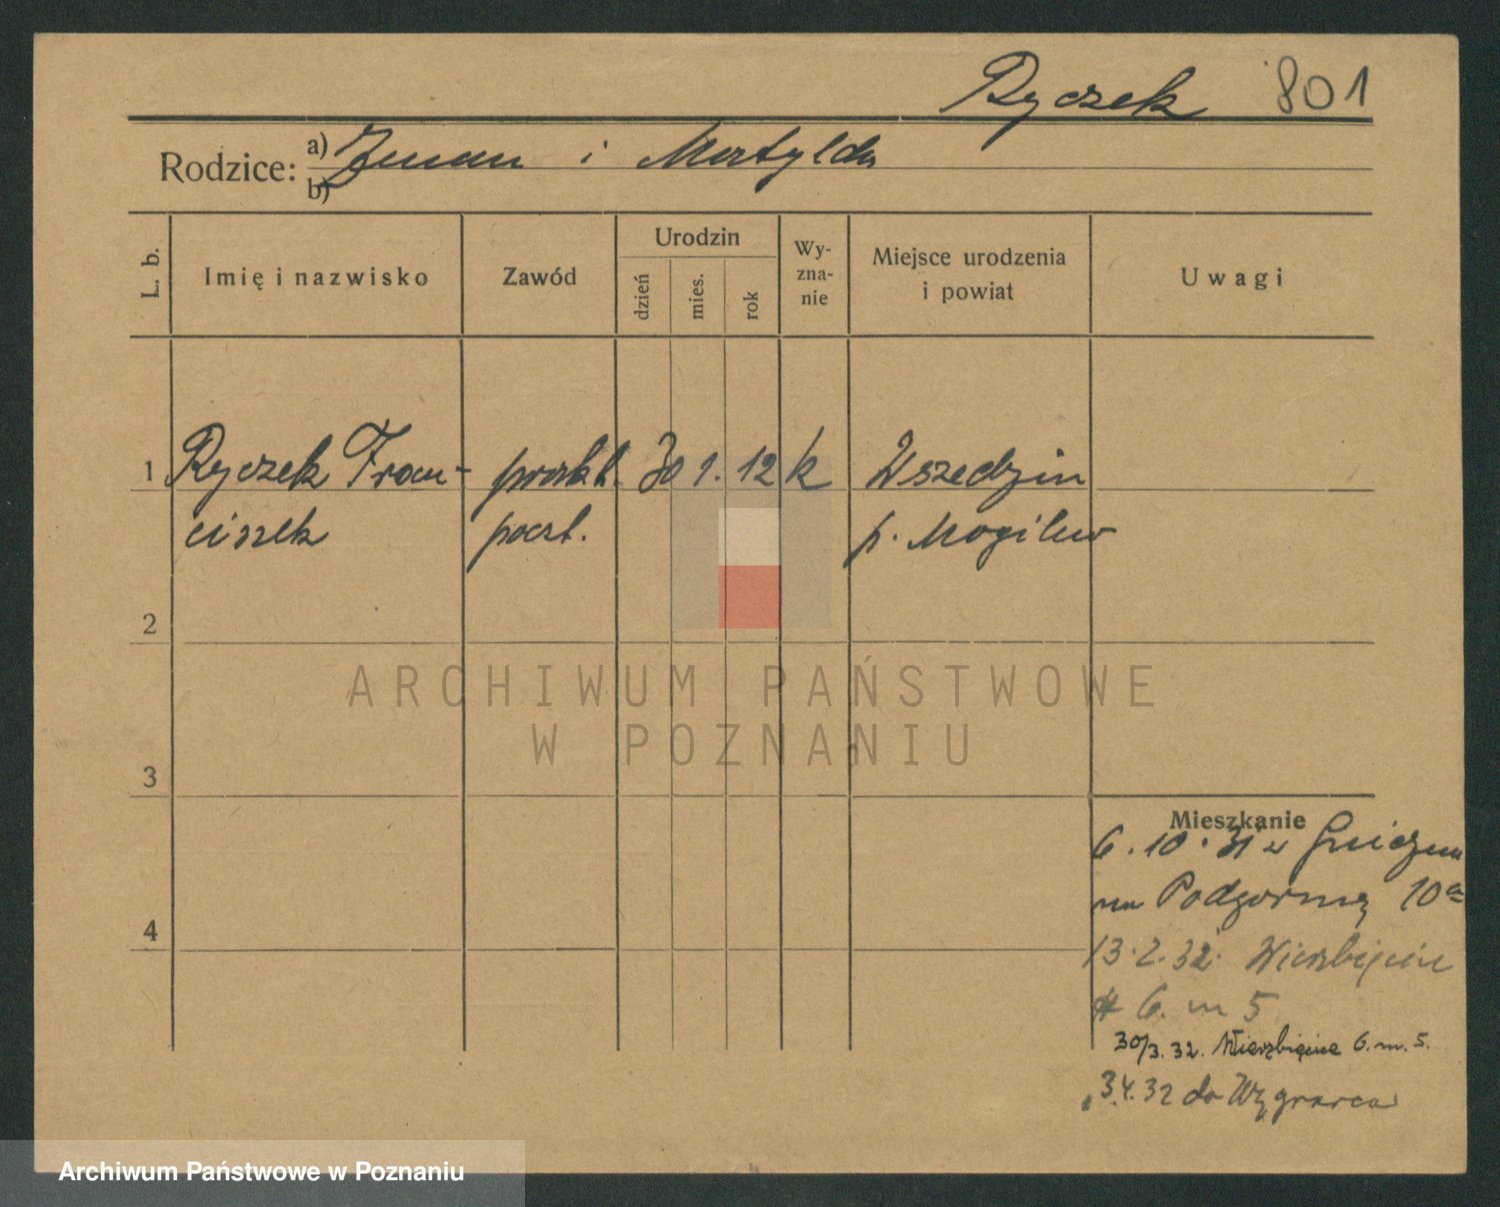 Ryczek 801
Rodzice: a) Zenan i Matylda
b)
L. b. Imię i nazwisko Zawód Urodzin dzień mies. rok Wy-zna-nie Miejsce urodzenia i powiat Uwagi
1 Ryczek Fran- prakt. 30 1. 12 k Wszedzin
ciszek poczt. p. Mogilno
2
3
4
Mieszkanie
6.10.31 z Gniezna
na Podgórną 10a
13.2.32. Wierzbięcice
6. m 5
30/3.32. Wierzbięcice 6. m. 5.
3.4.32 do Wągrowca
ARCHIWUM PAŃSTWOWE
W POZNANIU
Archiwum Państwowe w Poznaniu